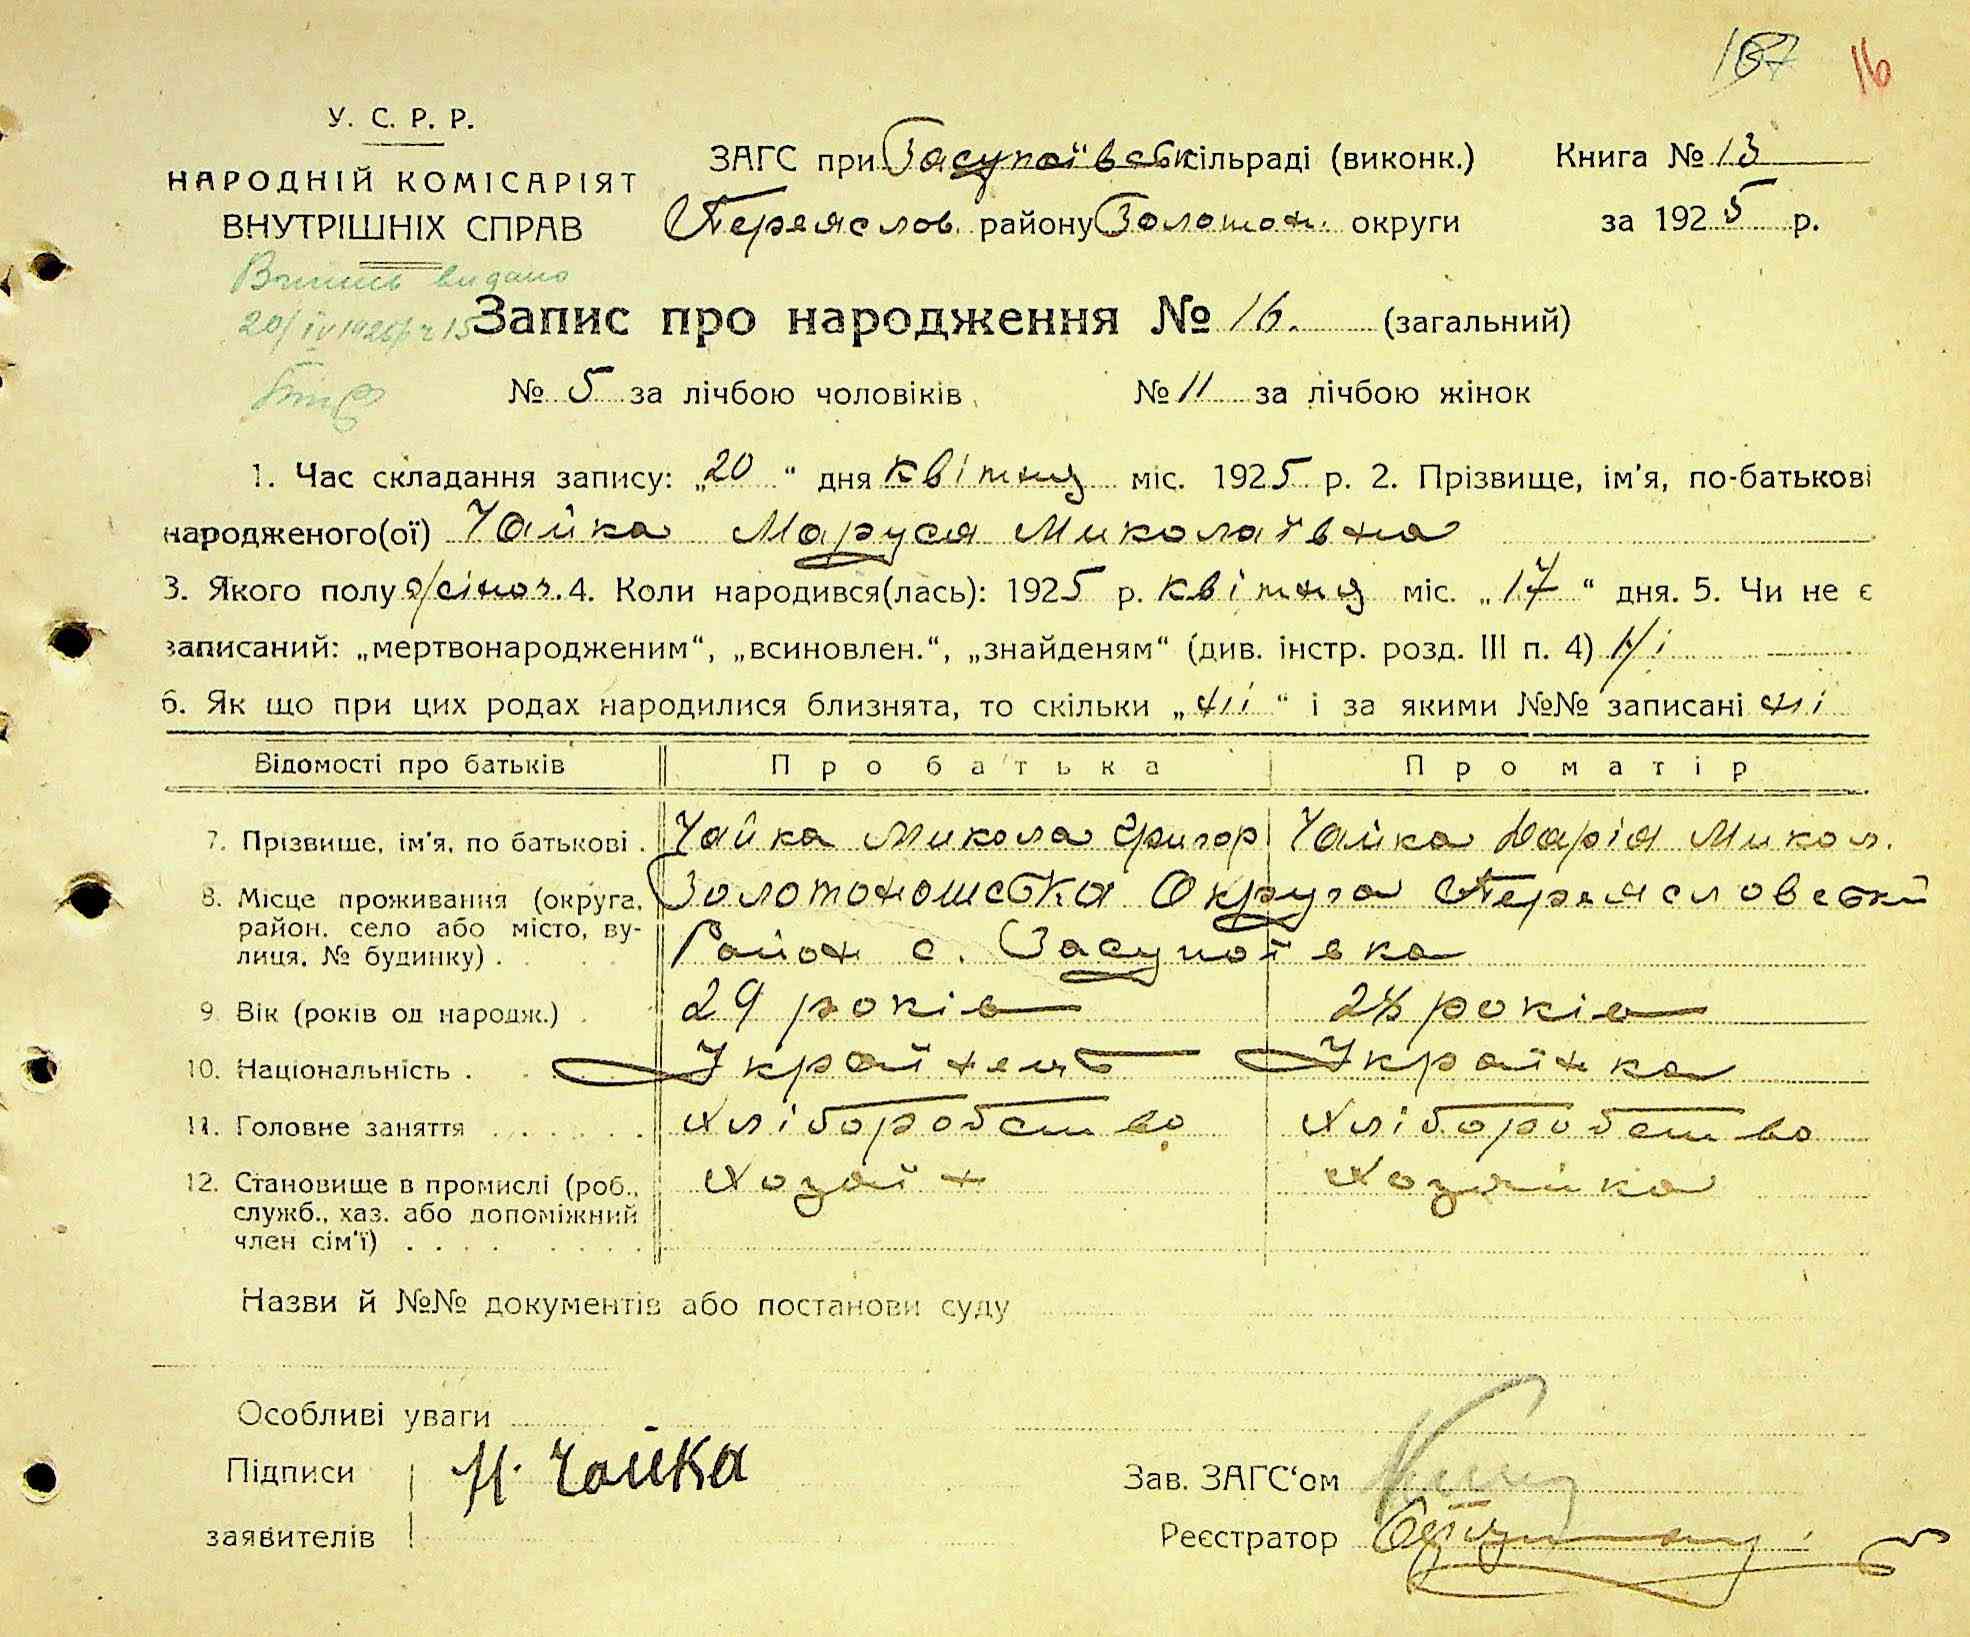 167 16
У. С. Р. Р.
НАРОДНІЙ КОМІСАРІЯТ
ВНУТРІШНІХ СПРАВ
ЗАГС при Засупоївськ сільраді (виконк.) Книга № 13
Переяслов. району Золотон. округи за 1925 р.
видано
20/IV 1925 р
Запис про народження № 16. (загальний)
№ 5 за лічбою чоловіків № 11 за лічбою жінок
1. Час складання запису: „20“ дня квітня міс. 1925 р. 2. Прізвище, ім'я, по-батькові
народженого(ої) Чайка Маруся Миколаївна
3. Якого полу жіноч. 4. Коли народився(лась): 1925 р. квітня міс. „17“ дня. 5. Чи не є
записаний: „мертвонародженим“, „всиновлен.“, „знайденям“ (див. інстр. розд. III п. 4) Ні
6. Як що при цих родах народилися близнята, то скільки „ні“ і за якими №№ записані ні
Відомості про батьків Про батька Про матір
7. Прізвище, ім'я, по батькові . Чайка Микола Григор Чайка Дарія Микол.
8. Місце проживання (округа, Золотоношська Округа Переясловські
район, село або місто, ву- Район с. Засупоївка
лиця, № будинку) .
9. Вік (років од народж.) . 29 років років
10. Національність . Украйнець Украйнка
11. Головне заняття . . . . . . Хліборобство Хліборобство
12. Становище в промислі (роб., Хозайн Хозяйка
служб., хаз. або допоміжний
член сім'ї) . . . .
Назви й №№ документів або постанови суду
Особливі уваги
Підписи Н. Чайка Зав. ЗАГС'ом
заявителів Реєстратор